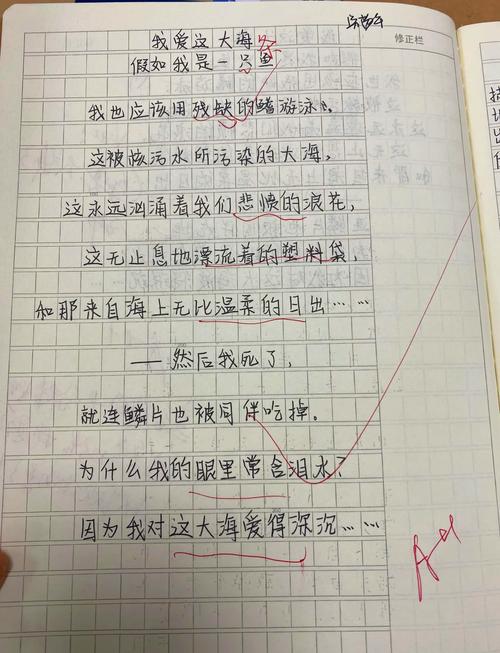 修正栏
我爱这大海
假如我是一只鱼
我也应该用残缺的鳍游泳。
这被核污水所污染的大海,
这永远汹涌着我们悲愤的浪花,
这无止息地漂流着的塑料袋,
和那来自海上无比温柔的日出……
——然后我死了,
就连鳞片也被同伴吃掉。
为什么我的眼里常含泪水?
因为我对这大海爱得深沉……